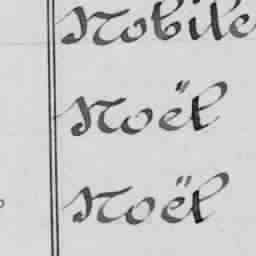 Nobile
Noël
Noël